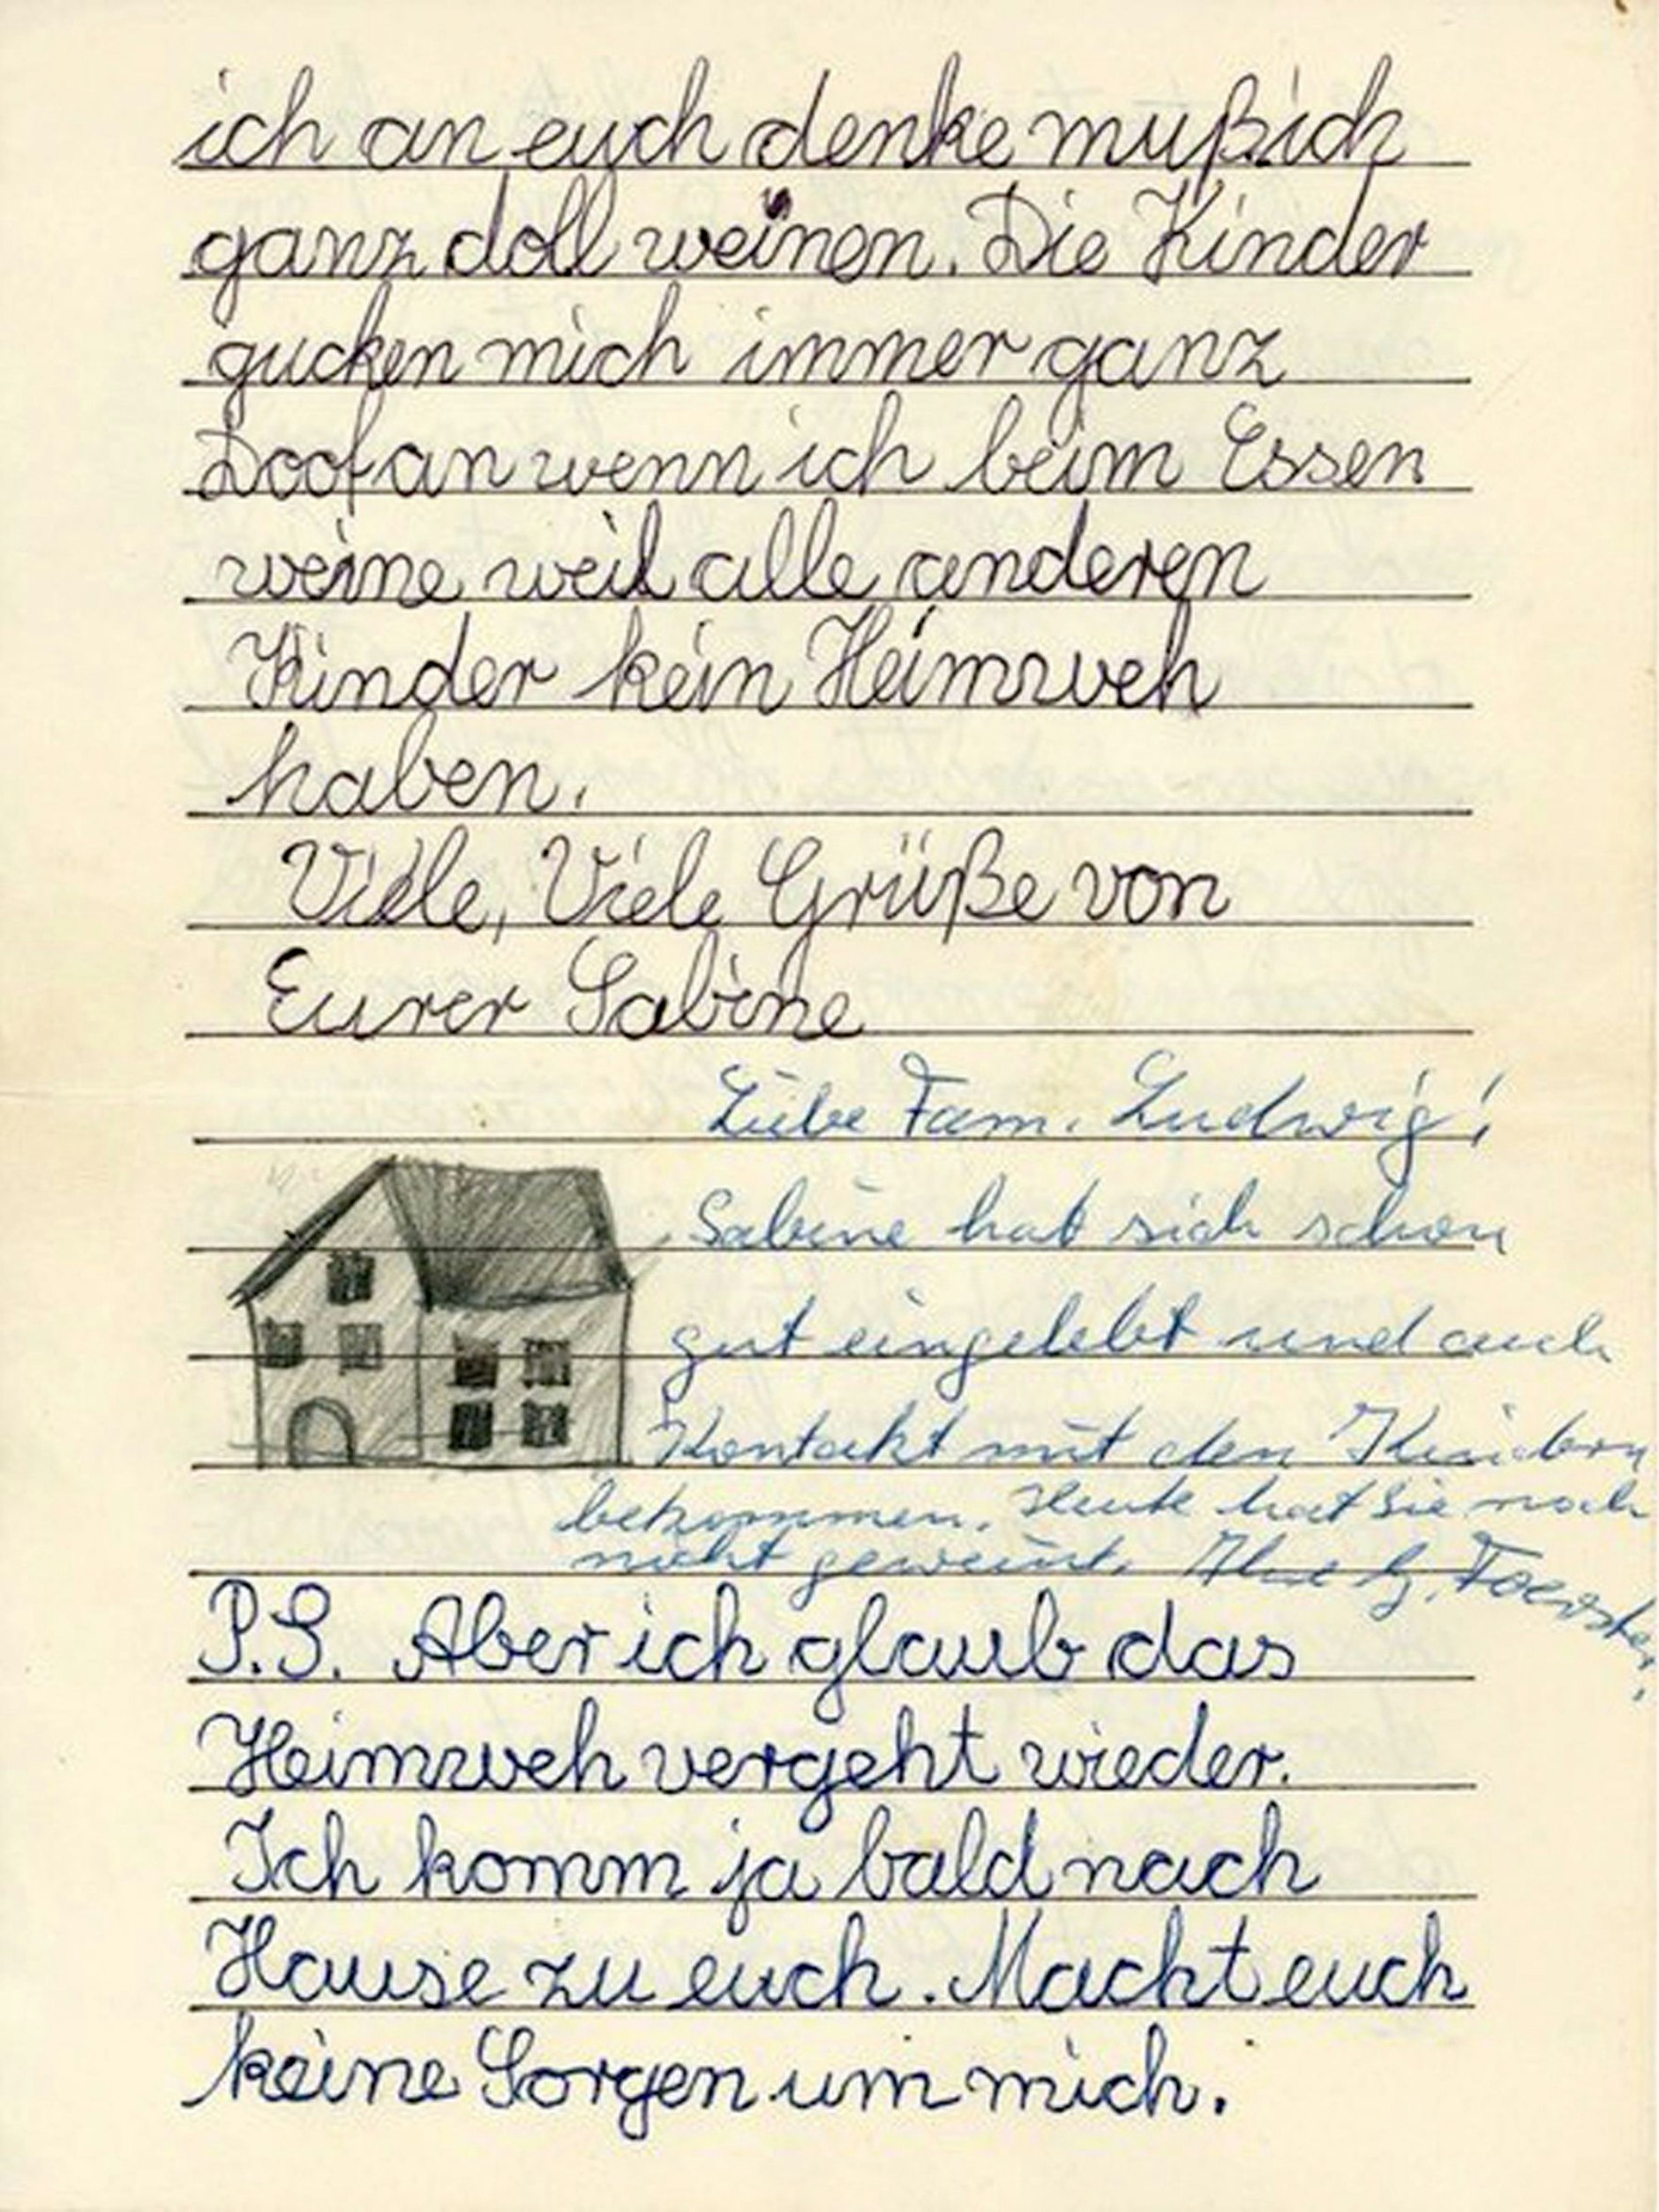 ich an euch denke muß ich
ganz doll weinen. Die Kinder
gucken mich immer ganz
Doof an wenn ich beim Essen
weine weil alle anderen
Kinder kein Heimweh
haben.
Viele, Viele Grüße von
Eurer Sabine
Liebe Fam. Ludwig!
Sabine hat sich schon
gut eingelebt und auch
Kontakt mit den Kindern
bekommen. Heute hat sie noch
nicht geweint.
P.S. Aber ich glaub das
Heimweh vergeht wieder.
Ich komm ja bald nach
Hause zu euch. Macht euch
keine Sorgen um mich.